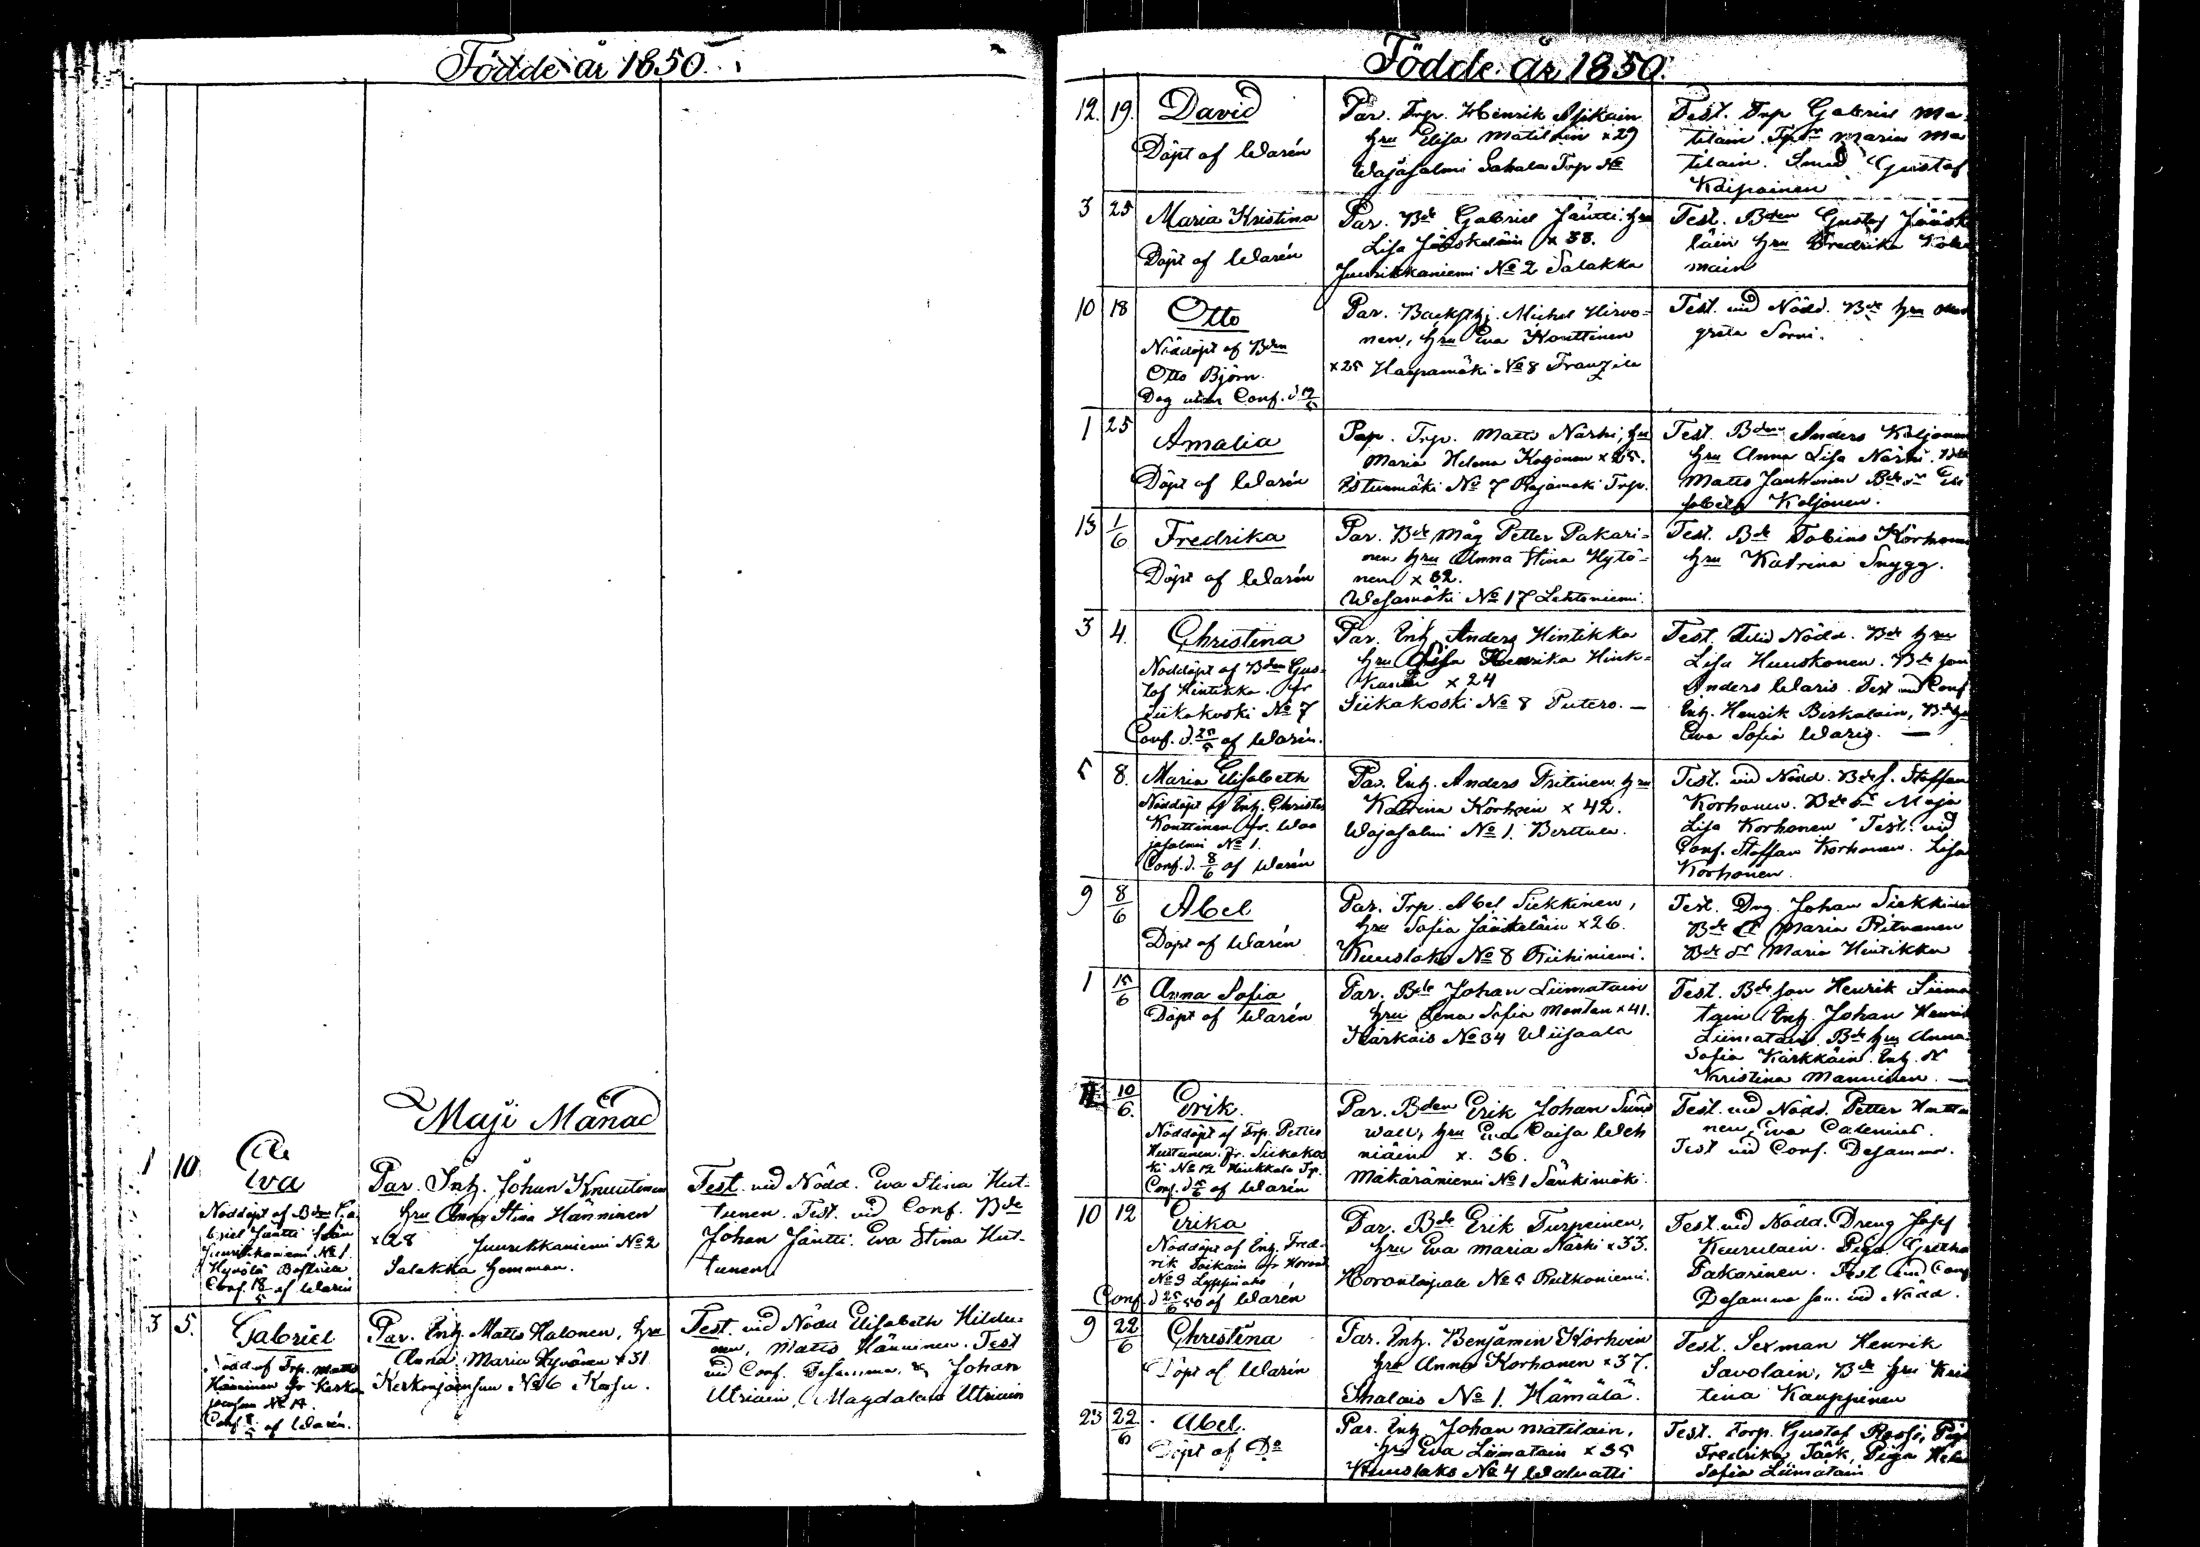 Födde år 1850.
Maji Månad
1 10
Eva
Nöddöpt af Bden Ga-
briel Jäntti från
Juurikkaniemi No 1.
Hyvölä
Conf. 18/5 af Warén
Par. Inh. Johan Knuutinen
hru Anna Stina Hänninen
x 28 Juurikkaniemi No 2
Salakka hemman.
Test. vid Nödd. Eva Stina Hut-
tunen. Test. vid Conf. Bde
Johan Jäntti. Eva Stina Hut-
tunen
3 5.
Gabriel
Nödd af Trp. Matts
Hänninen fr Kerkon-
joensuu No 14.
Conf. af Warén.
Par. Inh. Matts Halonen, hru
Anna Maria Hyvönen x 31
Kerkonjoensuu No 6
Test. vid Nödd Elisabeth
Matts Hänninen. Test
vid Conf. Desamma, & Johan
Utriain, Magdalena Utriain
Födde år 1850.
12. 19.
David
Döpt af Warén
Par. Trp. Henrik
hru Elisa Matilain x 29
Wajasalmi Sahala Trp No
Test. Trp Gabriel Ma-
tilain. Maria Ma-
tilain. Smed Gustaf
Kaipainen
3 25
Maria Kristina
Döpt af Warén
Par. Bde Gabriel Jäntti. hru
Lisa Jääskeläin x 38.
Juurikkaniemi No 2 Salakka
Test. Bden Gustaf Jääske
läin hru Fredrika
main
10 18
Otto
Nöddöpt af Bden
Otto Björn.
Dog utan Conf. d
Par. Backsthj. Michel Hirvo-
nen, hru Eva Konttinen
x 25 Haapamäki No 8 Franzila
Test. vid Nödd. Bde hru
greta Sorri.
1 25
Amalia
Döpt af Warén
Pap. Trp. Matts Närhi, hru
Maria Helena Koljonen x 25.
Istunmäki No 7 Rajamäki Trp.
Test. Bden Anders Koljonen
hru Anna Lisa Närhi.
Matts Janhonen Bde dr Eli
sabeth Koljonen.
13 1/6
Fredrika
Döpt af Warén
Par. Bde måg Petter Pakari-
nen hru Anna Stina Hytö-
nen x 32.
Wesamäki No 17 Lehtoniemi.
Test. Bde Tobias Korhonen
hru Katrina Snygg.
3 4.
Christina
Nöddöpt af Bden Gus-
taf Hintikka. fr
Siikakoski No 7
Conf. d. af Warén.
Par. Inh. Anders Hintikka
hru Lisa Henrika Hink-
kanen x 24
Siikakoski No 8 Putero. —
Test. vid Nödd. Bde hru
Lisa Huuskonen. Bde son
Anders Waris. Test vid Conf
Inh. Henrik Birkalain, Bde hru
Eva Sofia Waris. —
5 8.
Maria Elisabeth
Nöddöpt af Inh. Christer
Konttinen fr. Waa
jasalmi No 1.
Conf. d. 8/6 af Warén
Par. Inh. Anders Tritinen hru
Katrina Korhoin x 42.
Wajasalmi No 1. Berttula.
Test. vid Nödd. Bde s. Staffan
Korhonen. Bde dr Maja
Lisa Korhonen Test. vid
Conf. Staffan Korhonen. Lisa
Korhonen.
9 8/6
Abel
Döpt af Warén
Par. Trp. Abel Siekkinen,
hru Sofia Jääskeläin x 26.
Kuuslaks No 8 Riihiniemi.
Test. Dng Johan Siekkinen
Bde dr Maria Ritvanen
Bde dr Maria Hintikka
1 15/6
Anna Sofia
Döpt af Warén
Par. Bde Johan Liimatain
hru Lena Sofia Monten x 41.
Kärkäis No 34 Wiisaala
Test. Bde son Henrik Liima
tain Inh. Johan Henrik
Liimatain. Bde hru Anna
Sofia Kärkkäin. Inh. dr
Kristina Manninen. —
10/6.
Erik.
Nöddöpt af Trp. Petter
Huttunen fr. Siikakos
ki No 12 Hinkkala Tp.
Conf. d af Warén
Par. Bden Erik Johan Sund
wall, hru Eva Caisa Weh
niäin x. 36.
Mäkäräniemi No 1 Särkimäki.
Test. vid Nödd. Petter Huttu
nen, Eva Calenius.
Test vid Conf. Desamma.
10 12
Erika
Nöddöpt af Inh. Fred-
rik Soikain fr Horont
No 3
Conf. d 25/6 50 af Warén
Par. Bde Erik Turpeinen,
hru Eva Maria Närhi x 33.
Horontaipale No 5 Rutkoniemi.
Test. vid Nödd. Dreng Josef
Kuurulain. Piga Gretha
Pakarinen. Test vid Conf
Desamma som vid Nödd.
9 22/6
Christina
Döpt af Warén
Par. Inh. Benjamin Korhoin
hru Anna Korhonen x 37.
No 1. Hämälä.
Test. Sexman Henrik
Savolain, Bde hru Kris
tina Kauppinen
23 22/6
Abel.
Döpt af Do
Par. Inh Johan Matilain,
hru Eva Liimatain x 35
Kuuslaks No 4
Test. Torp. Gustaf Piga
Fredrika Piga Hele
Sofia Liimatain